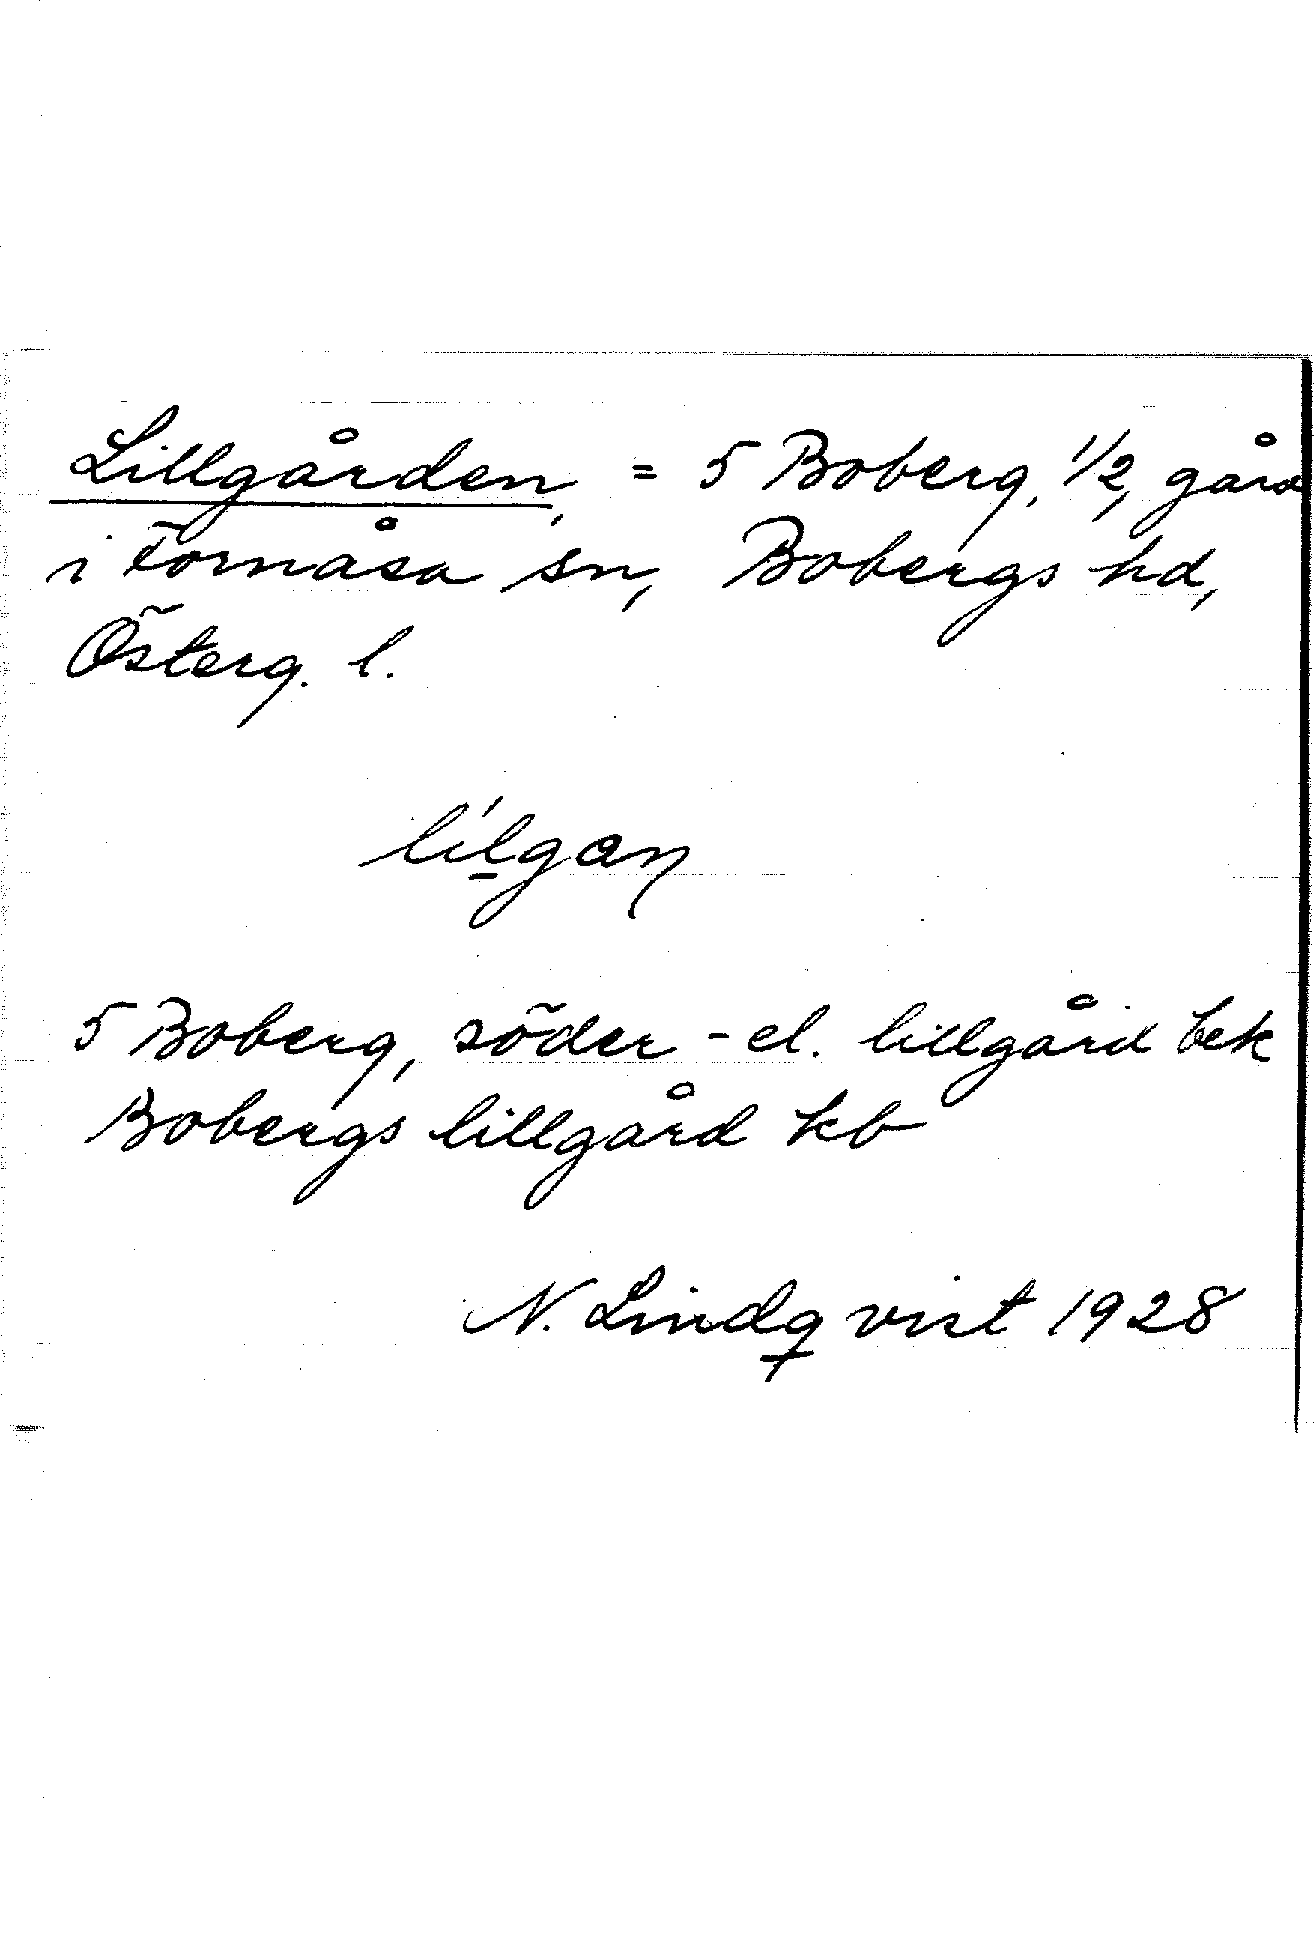 Lillgården, = 5 Boberg, 1/2, gård
i Fornåsa sn, Bobergs hd,
Österg. l.
lílgaɳ
5 Boberg, söder - el. lillgård bek
Bobergs lillgård kb
N. Lindqvist 1928